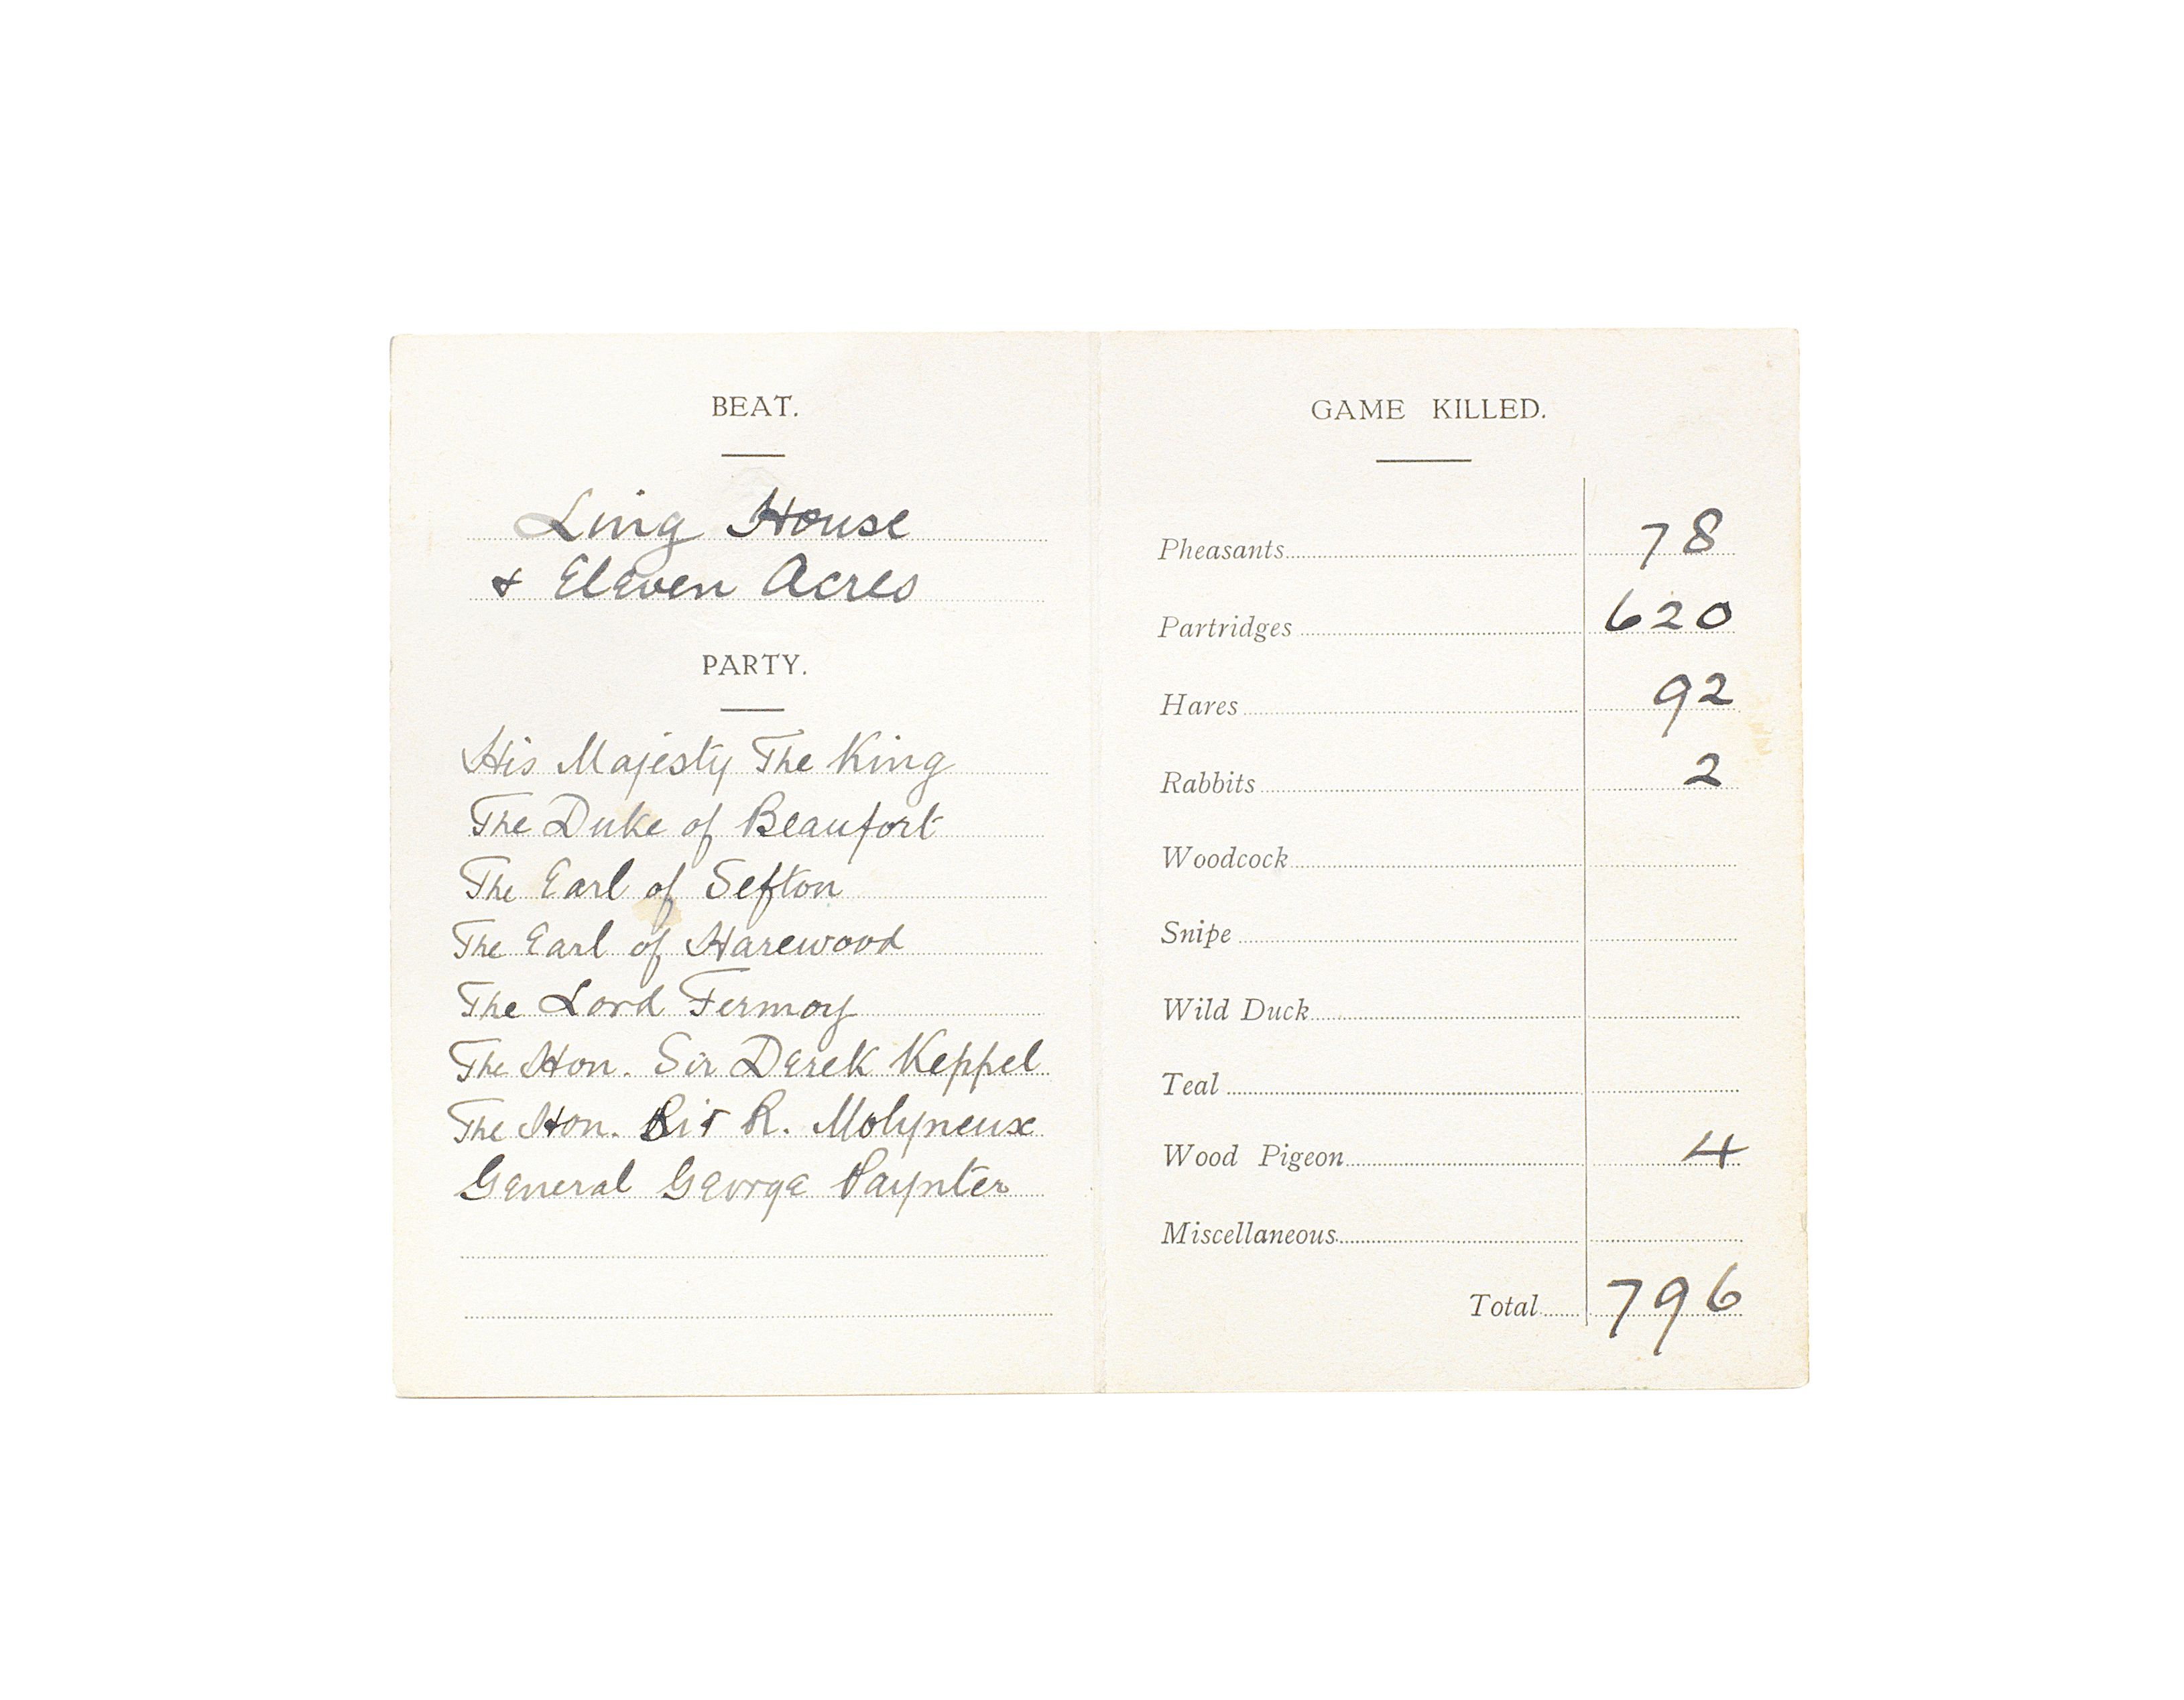 BEAT.
Ling House
& Eleven Acres
PARTY.
His Majesty The King
The Duke of Beaufort
The Earl of Sefton
The Earl of Harewood
The Lord Fermoy
The Hon. Sir Derek Keppel
The Hon. Sir R. Molyneux
General George Paynter
GAME KILLED.
Pheasants 78
Partridges 620
Hares 92
Rabbits 2
Woodcock
Snipe
Wild Duck
Teal
Wood Pigeon 4
Miscellaneous
Total 796